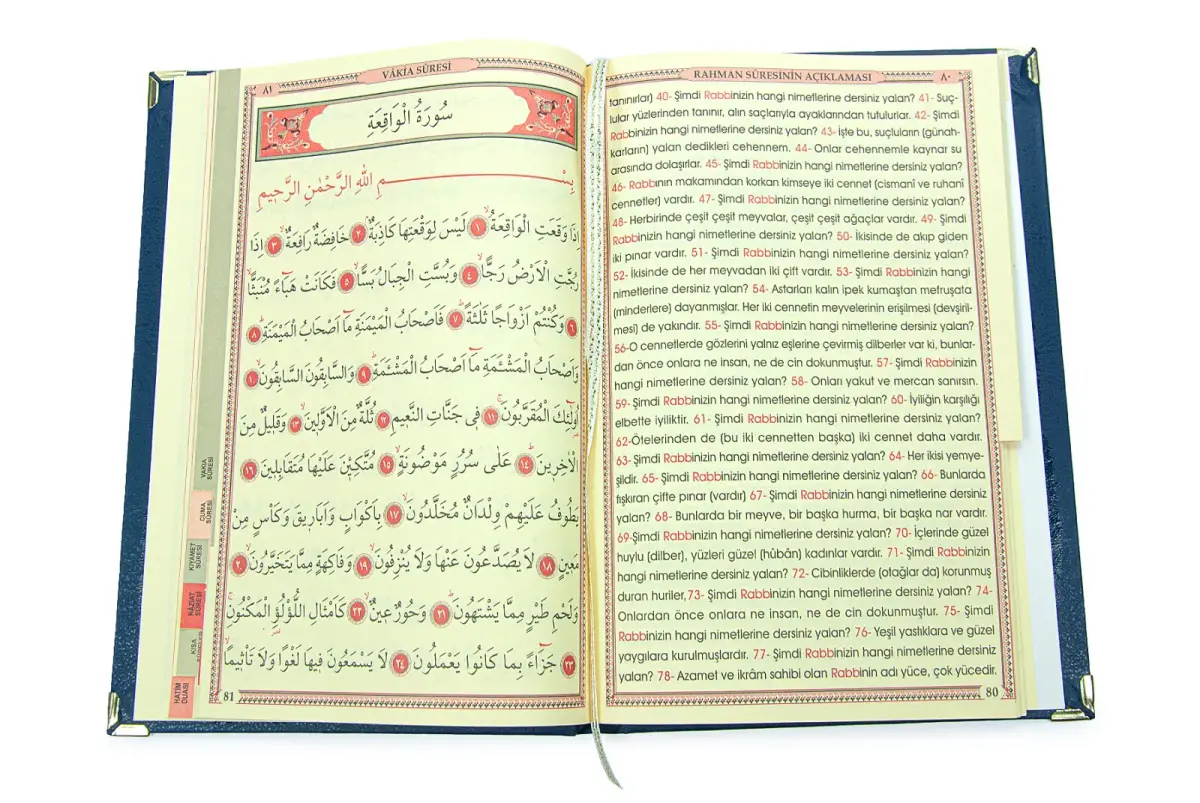 RAHMAN SÛRESİNİN AÇIKLAMASI ٨٠
tanınırlar) 40- Şimdi Rabbinizin hangi nimetlerine dersiniz yalan? 41- Suç-
lular yüzlerinden tanınır, alın saçlarıyla ayaklarından tutulurlar. 42- Şimdi
Rabbinizin hangi nimetlerine dersiniz yalan? 43- İşte bu, suçluların (günah-
karların) yalan dedikleri cehennem. 44- Onlar cehennemle kaynar su
arasında dolaşırlar. 45- Şimdi Rabbinizin hangi nimetlerine dersiniz yalan?
46- Rabbının makamından korkan kimseye iki cennet (cismanî ve ruhanî
cennetler) vardır. 47- Şimdi Rabbinizin hangi nimetlerine dersiniz yalan?
48- Herbirinde çeşit çeşit meyvalar, çeşit çeşit ağaçlar vardır. 49- Şimdi
Rabbinizin hangi nimetlerine dersiniz yalan? 50- İkisinde de akıp giden
iki pınar vardır. 51- Şimdi Rabbinizin hangi nimetlerine dersiniz yalan?
52- İkisinde de her meyvadan iki çift vardır. 53- Şimdi Rabbinizin hangi
nimetlerine dersiniz yalan? 54- Astarları kalın ipek kumaştan mefruşata
(minderlere) dayanmışlar. Her iki cennetin meyvelerinin erişilmesi (devşiril-
mesi) de yakındır. 55- Şimdi Rabbinizin hangi nimetlerine dersiniz yalan?
56-O cennetlerde gözlerini yalnız eşlerine çevirmiş dilberler var ki, bunlar-
dan önce onlara ne insan, ne de cin dokunmuştur. 57- Şimdi Rabbinizin
hangi nimetlerine dersiniz yalan? 58- Onları yakut ve mercan sanırsın.
59- Şimdi Rabbinizin hangi nimetlerine dersiniz yalan? 60- İyiliğin karşılığı
elbette iyiliktir. 61- Şimdi Rabbinizin hangi nimetlerine dersiniz yalan?
62-Ötelerinden de (bu iki cennetten başka) iki cennet daha vardır.
63- Şimdi Rabbinizin hangi nimetlerine dersiniz yalan? 64- Her ikisi yemye-
şildir. 65- Şimdi Rabbinizin hangi nimetlerine dersiniz yalan? 66- Bunlarda
fışkıran çifte pınar (vardır) 67- Şimdi Rabbinizin hangi nimetlerine dersiniz
yalan? 68- Bunlarda bir meyve, bir başka hurma, bir başka nar vardır.
69-Şimdi Rabbinizin hangi nimetlerine dersiniz yalan? 70- İçlerinde güzel
huylu (dilber), yüzleri güzel (hûbân) kadınlar vardır. 71- Şimdi Rabbinizin
hangi nimetlerine dersiniz yalan? 72- Cibinliklerde (otağlar da) korunmuş
duran huriler,73- Şimdi Rabbinizin hangi nimetlerine dersiniz yalan? 74-
Onlardan önce onlara ne insan, ne de cin dokunmuştur. 75- Şimdi
Rabbinizin hangi nimetlerine dersiniz yalan? 76- Yeşil yastıklara ve güzel
yaygılara kurulmuşlardır. 77- Şimdi Rabbinizin hangi nimetlerine dersiniz
yalan? 78- Azamet ve ikrâm sahibi olan Rabbinin adı yüce, çok yücedir.
80
٨١ VÂKİA SÛRESİ
سُورَةُ الْوَاقِعَةِ
بِسْمِ اللهِ الرَّحْمٰنِ الرَّحِيمِ
اِذَا وَقَعَتِ الْوَاقِعَةُ ۙ ١ لَيْسَ لِوَقْعَتِهَا كَاذِبَةٌ ۢ ٢ خَافِضَةٌ رَافِعَةٌ ۙ ٣ اِذَا
رُجَّتِ الْاَرْضُ رَجًّا ۙ ٤ وَبُسَّتِ الْجِبَالُ بَسًّا ۙ ٥ فَكَانَتْ هَبَٓاءً مُنْبَثًّا ۙ
٦ وَكُنْتُمْ اَزْوَاجًا ثَلٰثَةً ۜ ٧ فَاَصْحَابُ الْمَيْمَنَةِ مَٓا اَصْحَابُ الْمَيْمَنَةِ ۜ ٨
وَاَصْحَابُ الْمَشْـَٔمَةِ مَٓا اَصْحَابُ الْمَشْـَٔمَةِ ۜ ٩ وَالسَّابِقُونَ السَّابِقُونَ ۙ ١٠
اُو۬لٰٓئِكَ الْمُقَرَّبُونَ ۚ ١١ فِي جَنَّاتِ النَّعِيمِ ١٢ ثُلَّةٌ مِنَ الْاَوَّلِينَ ۙ ١٣ وَقَلِيلٌ مِنَ
الْاٰخِرِينَ ۜ ١٤ عَلٰى سُرُرٍ مَوْضُونَةٍ ۙ ١٥ مُتَّكِـِٔينَ عَلَيْهَا مُتَقَابِلِينَ ١٦
يَطُوفُ عَلَيْهِمْ وِلْدَانٌ مُخَلَّدُونَ ۙ ١٧ بِاَكْوَابٍ وَاَبَارِيقَ وَكَأْسٍ مِنْ
مَعِينٍ ۙ ١٨ لَا يُصَدَّعُونَ عَنْهَا وَلَا يُنْزِفُونَ ۙ ١٩ وَفَاكِهَةٍ مِمَّا يَتَخَيَّرُونَ ۙ ٢٠
وَلَحْمِ طَيْرٍ مِمَّا يَشْتَهُونَ ۜ ٢١ وَحُورٌ عِينٌ ۙ ٢٢ كَاَمْثَالِ اللُّؤْلُؤِ الْمَكْنُونِ ۚ
٢٣ جَزَٓاءً بِمَا كَانُوا يَعْمَلُونَ ٢٤ لَا يَسْمَعُونَ فِيهَا لَغْوًا وَلَا تَأْثِيمًا ۙ
81
VAKIA
SÛRESİ
CUMA
SÛRESİ
KIYAMET
SÛRESİ
NÂZİAT
SÛRESİ
KISA
HATİM
DUASI